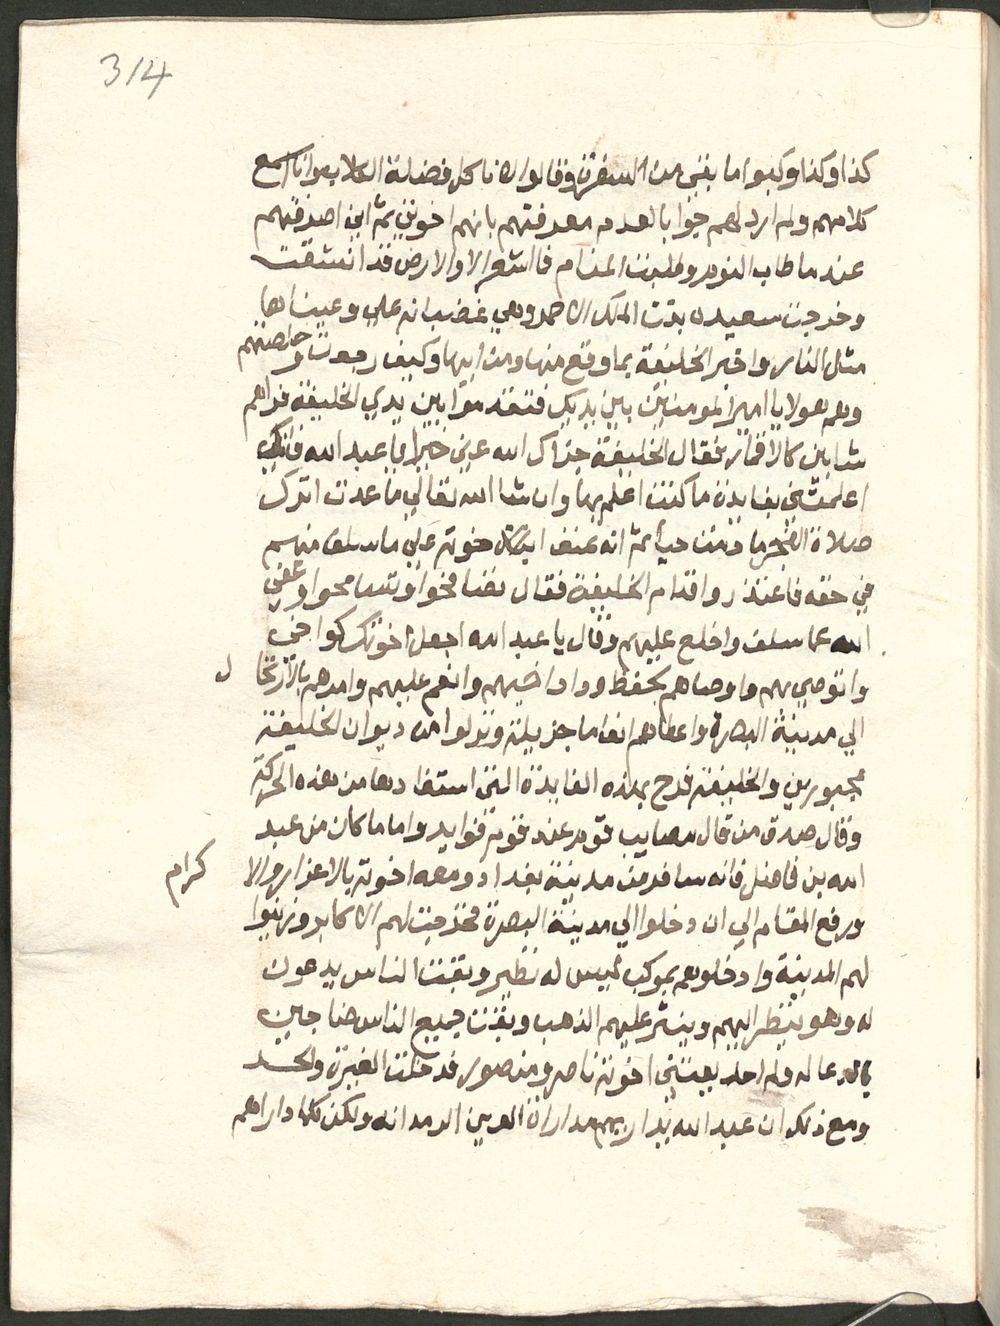 314
كذا وكذا وكبوا ما بقي من السفرة وقالوا انا ناكل فضلة الكلاب وانا اسمع
كلامهم ولم ارد لهم جوابا لعدم معرفتهم بانهم اخوتي ثم اني اصرفتهم
عند ما طاب النوم وطلبت المنام فما اشعر الا والارض قد انشقت
وخرجت سعيده بنت الملك الاحمر وهي غضبانه علي وعيناها
مثل النار واخبر الخليفة بما وقع منها ومن ابيها وكيف رجعت وخلصتهم
وهم هولا يا امير المومنين بين يديك فتقدموا بين يدي الخليفة فراهم
شابين كالاقمار فقال الخليفة جزاك الله عني خيرا يا عبد الله فانك
اعلمتني بفايدة ما كنت اعلم بها وان شا الله تعالي ما عدت اترك
صلاة الفجر ما دمت حيا ثم انه عنف اخوته علي ما سلف منهم
في حقه فاعتذروا قدام الخليفة فقال تصافحوا وتسامحوا وعفي
الله عما سلف واخلع عليهم وقال يا عبد الله اجعل اخوتك
واتوصي بهم واوصاهم بحفظ وداد اخيهم وانعم عليهم وامرهم بالارتحال
الي مدينة البصرة واعطاهم انعاما جزيلة ونزلوا من ديوان الخليفة
مجبورين والخليفة فرح بهذه الفايدة التي استفادها من هذه الحركة
وقال صدق من قال مصايب قوم عند قوم فوايد واما ما كان من عبد
الله بن فاضل فانه سافر من مدينة بغداد ومعه اخوته بالاعزاز والاكرام
ورفع المقام الي ان دخلوا الي مدينة البصرة فخرجت لهم الاكابر وزينوا
لهم المدينة وادخلوهم بموكب ليس له نظير وبقت الناس يدعون
له وهو ينظر اليهم وينثر عليهم الذهب وبقت جميع الناس ضاجين
بالدعا له ولم احد يعتني اخوته ناصر ومنصور فدخلت الغيرة والحسد
ومع ذلك ان عبد الله يداريهم مداراة العين الرمدانه ولكن كلما داراهم